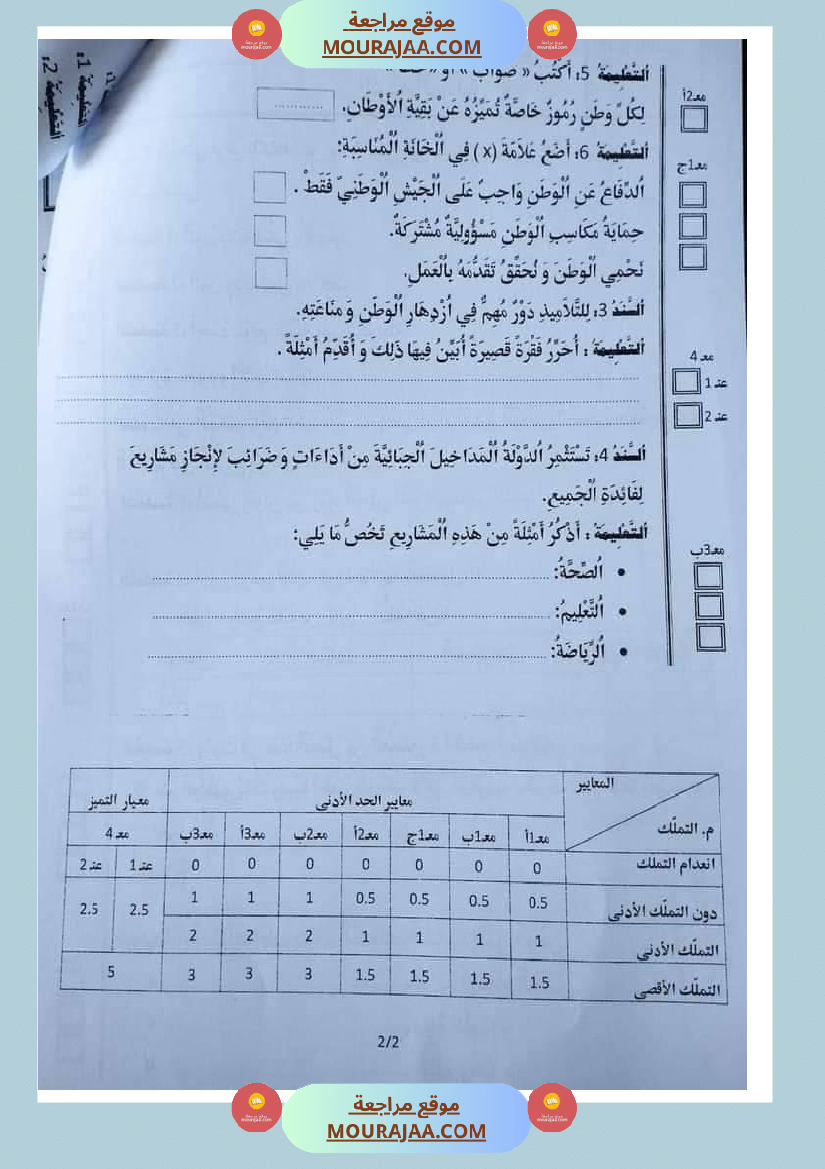 موقع مراجعة
MOURAJAA.COM
التعليمة 1:
التعليمة 2:
مع2أ
اَلتَّعْلِيمَةُ 5: أَكْتُبُ « صَوَابٌ » أَوْ
لِكُلِّ وَطَنٍ رُمُوزٌ خَاصَّةٌ تُمَيِّزُهُ عَنْ بَقِيَّةِ اُلْأَوْطَانِ. ............
مع1ج
اَلتَّعْلِيمَةُ 6: أَضَعُ عَلَامَةَ (x) فِي اُلْخَانَةِ اُلْمُنَاسِبَةِ:
اَلدِّفَاعُ عَنِ اُلْوَطَنِ وَاجِبٌ عَلَى اُلْجَيْشِ اُلْوَطَنِيِّ فَقَطْ .
حِمَايَةُ مَكَاسِبِ اُلْوَطَنِ مَسْؤُولِيَّةٌ مُشْتَرَكَةٌ.
نَحْمِي اُلْوَطَنَ وَ نُحَقِّقُ تَقَدُّمَهُ بِالْعَمَلِ.
اَلسَّنَدُ 3: لِلتَّلَامِيذِ دَوْرٌ مُهِمٌّ فِي اُزْدِهَارِ اُلْوَطَنِ وَ مَنَاعَتِهِ.
مع 4
اَلتَّعْلِيمَةُ : أُحَرِّرُ فَقْرَةً قَصِيرَةً أُبَيِّنُ فِيهَا ذَلِكَ وَ أُقَدِّمُ أَمْثِلَةً .
عد 1
عد 2
اَلسَّنَدُ 4: تَسْتَثْمِرُ اُلدَّوْلَةُ اُلْمَدَاخِيلَ اُلْجِبَائِيَّةَ مِنْ أَدَاءَاتٍ وَ ضَرَائِبَ لِإِنْجَازِ مَشَارِيعَ
لِفَائِدَةِ اُلْجَمِيعِ.
اَلتَّعْلِيمَةُ : أَذْكُرُ أَمْثِلَةً مِنْ هَذِهِ اُلْمَشَارِيعِ تَخُصُّ مَا يَلِي:
مع3ب
• اُلصِّحَّةُ:
• اُلتَّعْلِيمُ:
• اُلرِّيَاضَةُ:
المعايير معايير الحد الأدنى معيار التميز
م. التملّك مع1أ مع1ب مع1ج مع2أ مع2ب مع3أ مع3ب مع 4
انعدام التملك 0 0 0 0 0 0 0 عد 1 عد 2
دون التملّك الأدنى 0.5 0.5 0.5 0.5 1 1 1 2.5 2.5
التملّك الأدنى 1 1 1 1 2 2 2
التملّك الأقصى 1.5 1.5 1.5 1.5 3 3 3 5
2/2
موقع مراجعة
MOURAJAA.COM